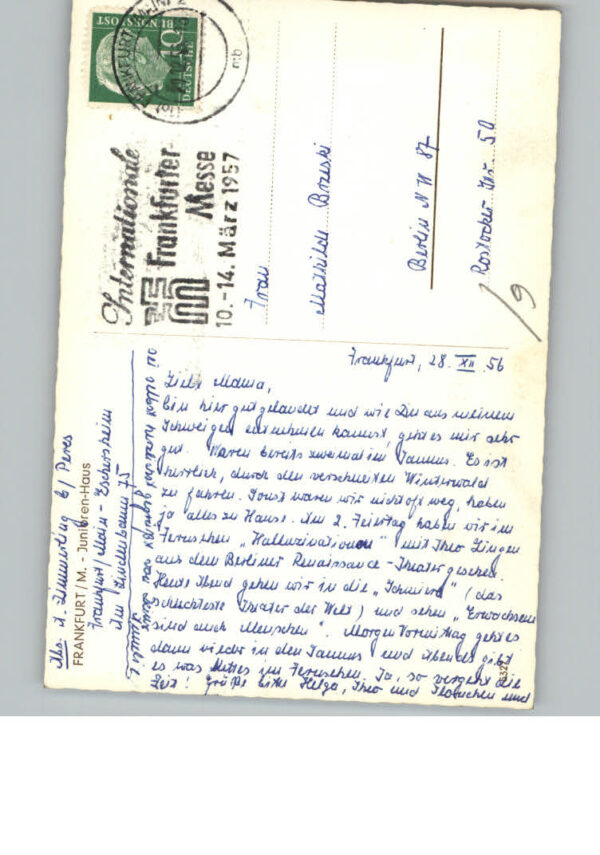 FRANKFURT (MAIN) 2
mb
DEUTSCHE
BUNDESPOST
10
Internationale
Frankfurter
Messe
10.-14. März 1957
Frau
Mathilde Brzeski
Berlin NW 87
Rostocker Str. 50
9
Frankfurt, 28. XII. 56
Liebe Mama,
bin hier gut gelandet und wie Du aus meinem
Schweigen entnehmen kannst, geht es mir sehr
gut. Waren bereits zweimal im Taunus. Es ist
herrlich, durch den verschneiten Winterwald
zu fahren. Sonst waren wir nicht oft weg, haben
ja alles zu Hause. Am 2. Feiertag haben wir im
Fernsehen „Halluzinationen" mit Theo Lingen
aus dem Berliner Renaissance-Theater gesehen.
Heute Abend gehen wir in die „Schmiere" (das
schlechteste Theater der Welt) und sehen „Erwachsene
sind auch Menschen". Morgen Vormittag geht es
dann wieder in den Taunus und Abends gibt
es was Nettes im Fernsehen. Ja, so vergeht die
Zeit! Grüße bitte Helga, Theo und und
Abs. Zimmerling b/ Peres
Frankfurt/Main-Eschersheim
Am Lindenbaum 75
FRANKFURT/M. - Junioren-Haus